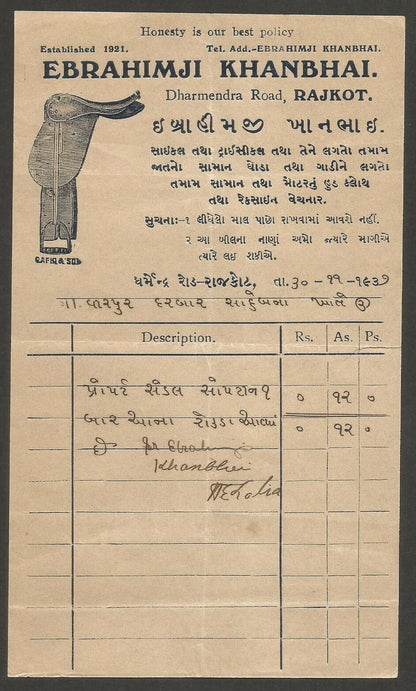 Honesty is our best policy
Established 1921. Tel. Add.-EBRAHIMJI KHANBHAI.
EBRAHIMJI KHANBHAI.
Dharmendra Road, RAJKOT.
ઇબ્રાહીમજી ખાનભાઇ.
સાઇકલ તથા ટ્રાઇસીકલ તથા તેને લગતો તમામ
જાતનો સામાન ઘોડા તથા ગાડીને લગતો
તમામ સામાન તથા મોટરનું હુડ કલોથ
તથા રેકસાઇન વેચનાર.
સુચનાઃ-૧ લીધેલો માલ પાછો રાખવામાં આવશે નહીં.
૨ આ બીલના નાણાં અમો જ્યારે માગીએ
ત્યારે લઇ શકીએ.
RAFIQ & SON
ધર્મેન્દ્ર રોડ-રાજકોટ, તા.૩૦-૧૧-૧૯૩૭
દરબાર સાહેબના ખાતે
Description. Rs. As. Ps.
૦ ૧૨ ૦
બાર આના રોકડા ૦ ૧૨ ૦
for Ebrahimji
Khanbhai